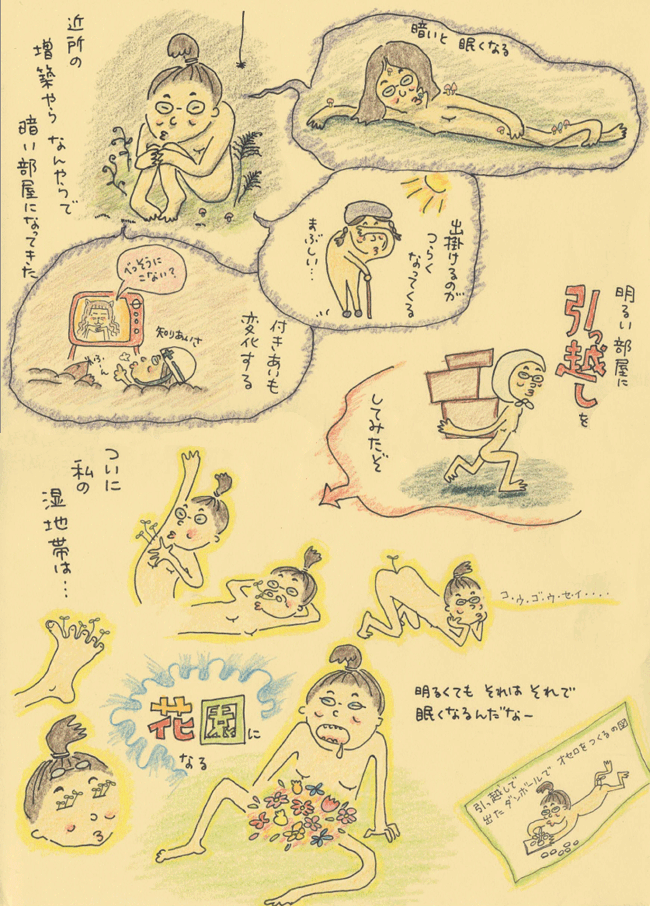 近所の
増築やら なんやらで
暗い部屋になってきた
暗いと 眠くなる
出掛けるのが
つらく
なってくる
まぶしい…
付きあいも
変化する
べっそうに
こない?
知りあいさ
明るい部屋に
引っ越しを
してみたぞ
ついに
私の
湿地帯は…
コ・ウ・ゴ・ウ・セ・イ・・・・
花園に
なる
明るくても それはそれで
眠くなるんだなー
引っ越しで
出たダンボールで オセロをつくるの図